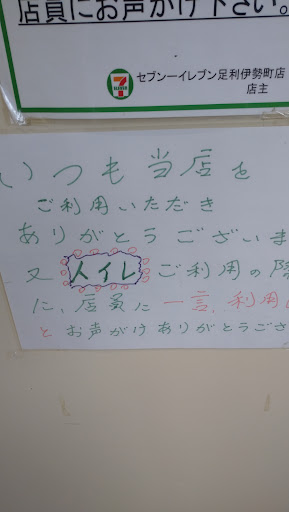 店員にお声がけ下さい。
7
ELEVEN
セブン-イレブン足利伊勢町店
店主
いつも当店を
ご利用いただき
ありがとうございま
又 人イレ ご利用の際
に、店員に一言、利用
とお声がけありがとうござ